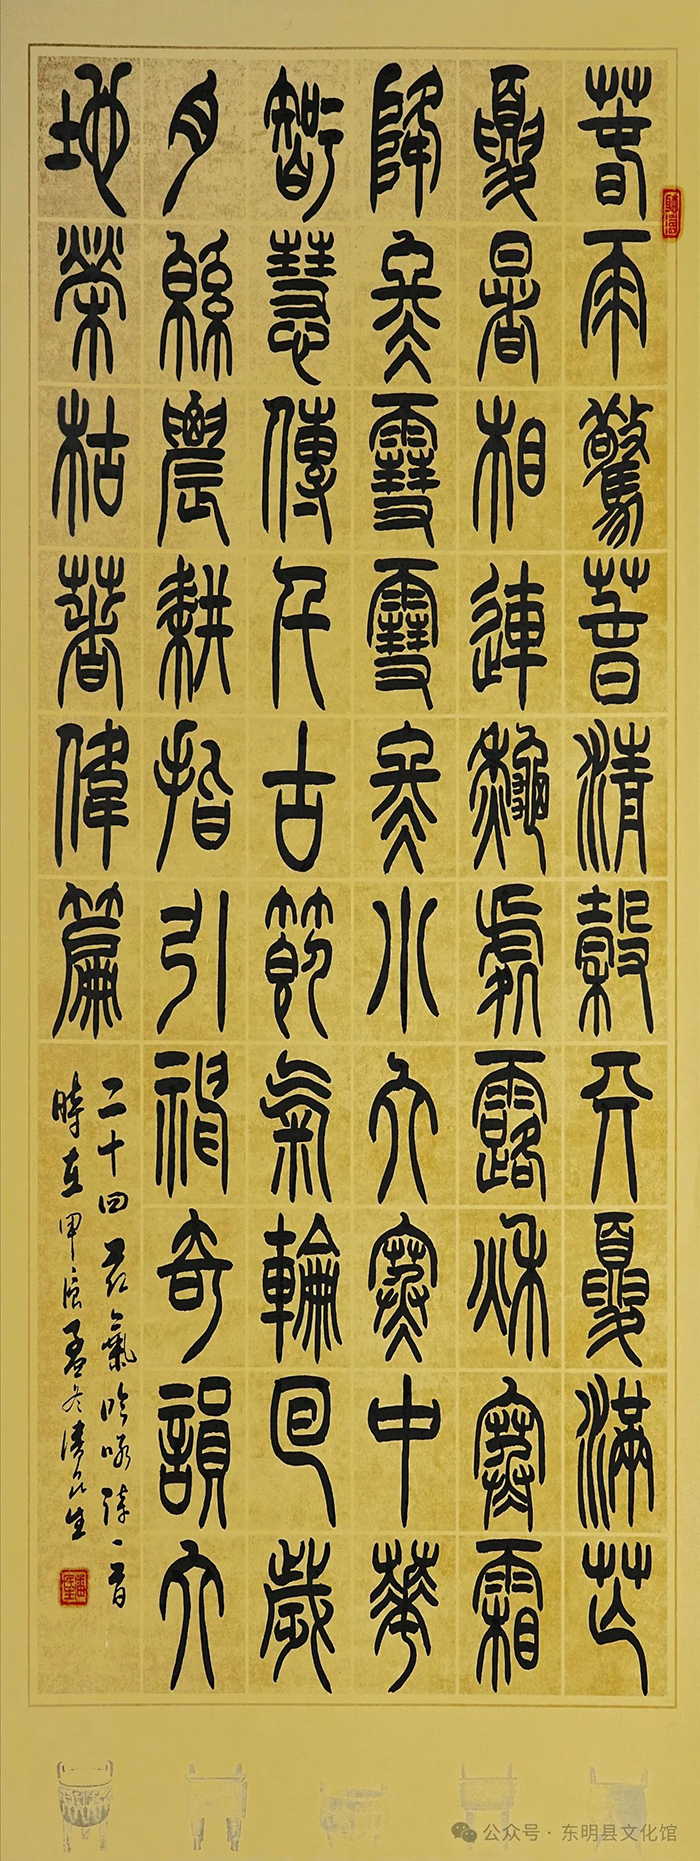 春雨驚春清穀天夏滿芒
夏暑相連秋處露秋寒霜
降冬雪雪冬小大寒中華
智慧傳千古節氣輪回歲
月緜農耕指引神奇韻大
地榮枯著偉篇
二十四节氣吟咏詩一首
時在甲辰孟冬
公众号 · 东明县文化馆